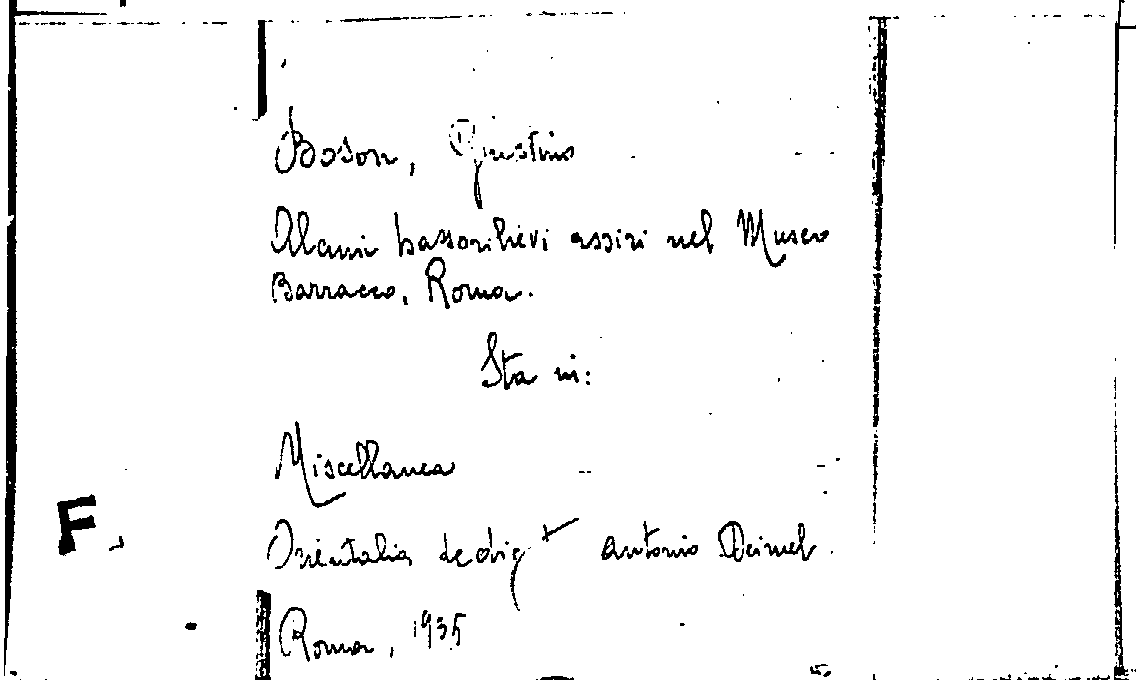 Boson, Giustino
Alcuni bassorilievi assiri nel Museo
Barracco, Roma.
Sta in:
Miscellanea
F
Orientalia dedic Antonio Deimel.
Roma, 1935